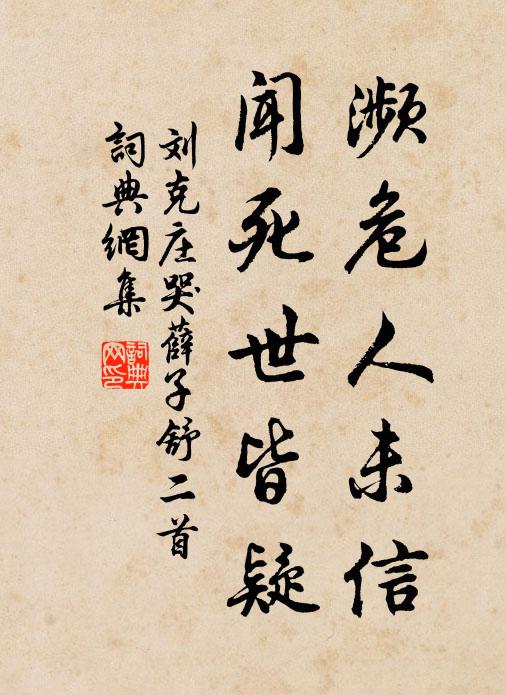 濒危人未信
闻死世皆疑
刘克庄哭薛子舒二首
词典网集
詞典网印